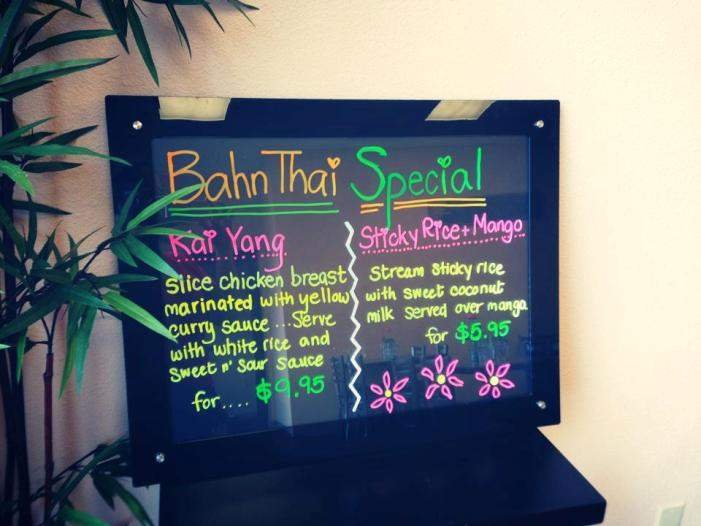 Bahn Thai Special
Kai Yang
Slice chicken breast
marinated with yellow
curry sauce ... Serve
with white rice and
Sweet n' Sour Sauce
for.... $9.95
Sticky Rice + Mango
Stream Sticky rice
with sweet coconut
milk served over mango
for $5.95